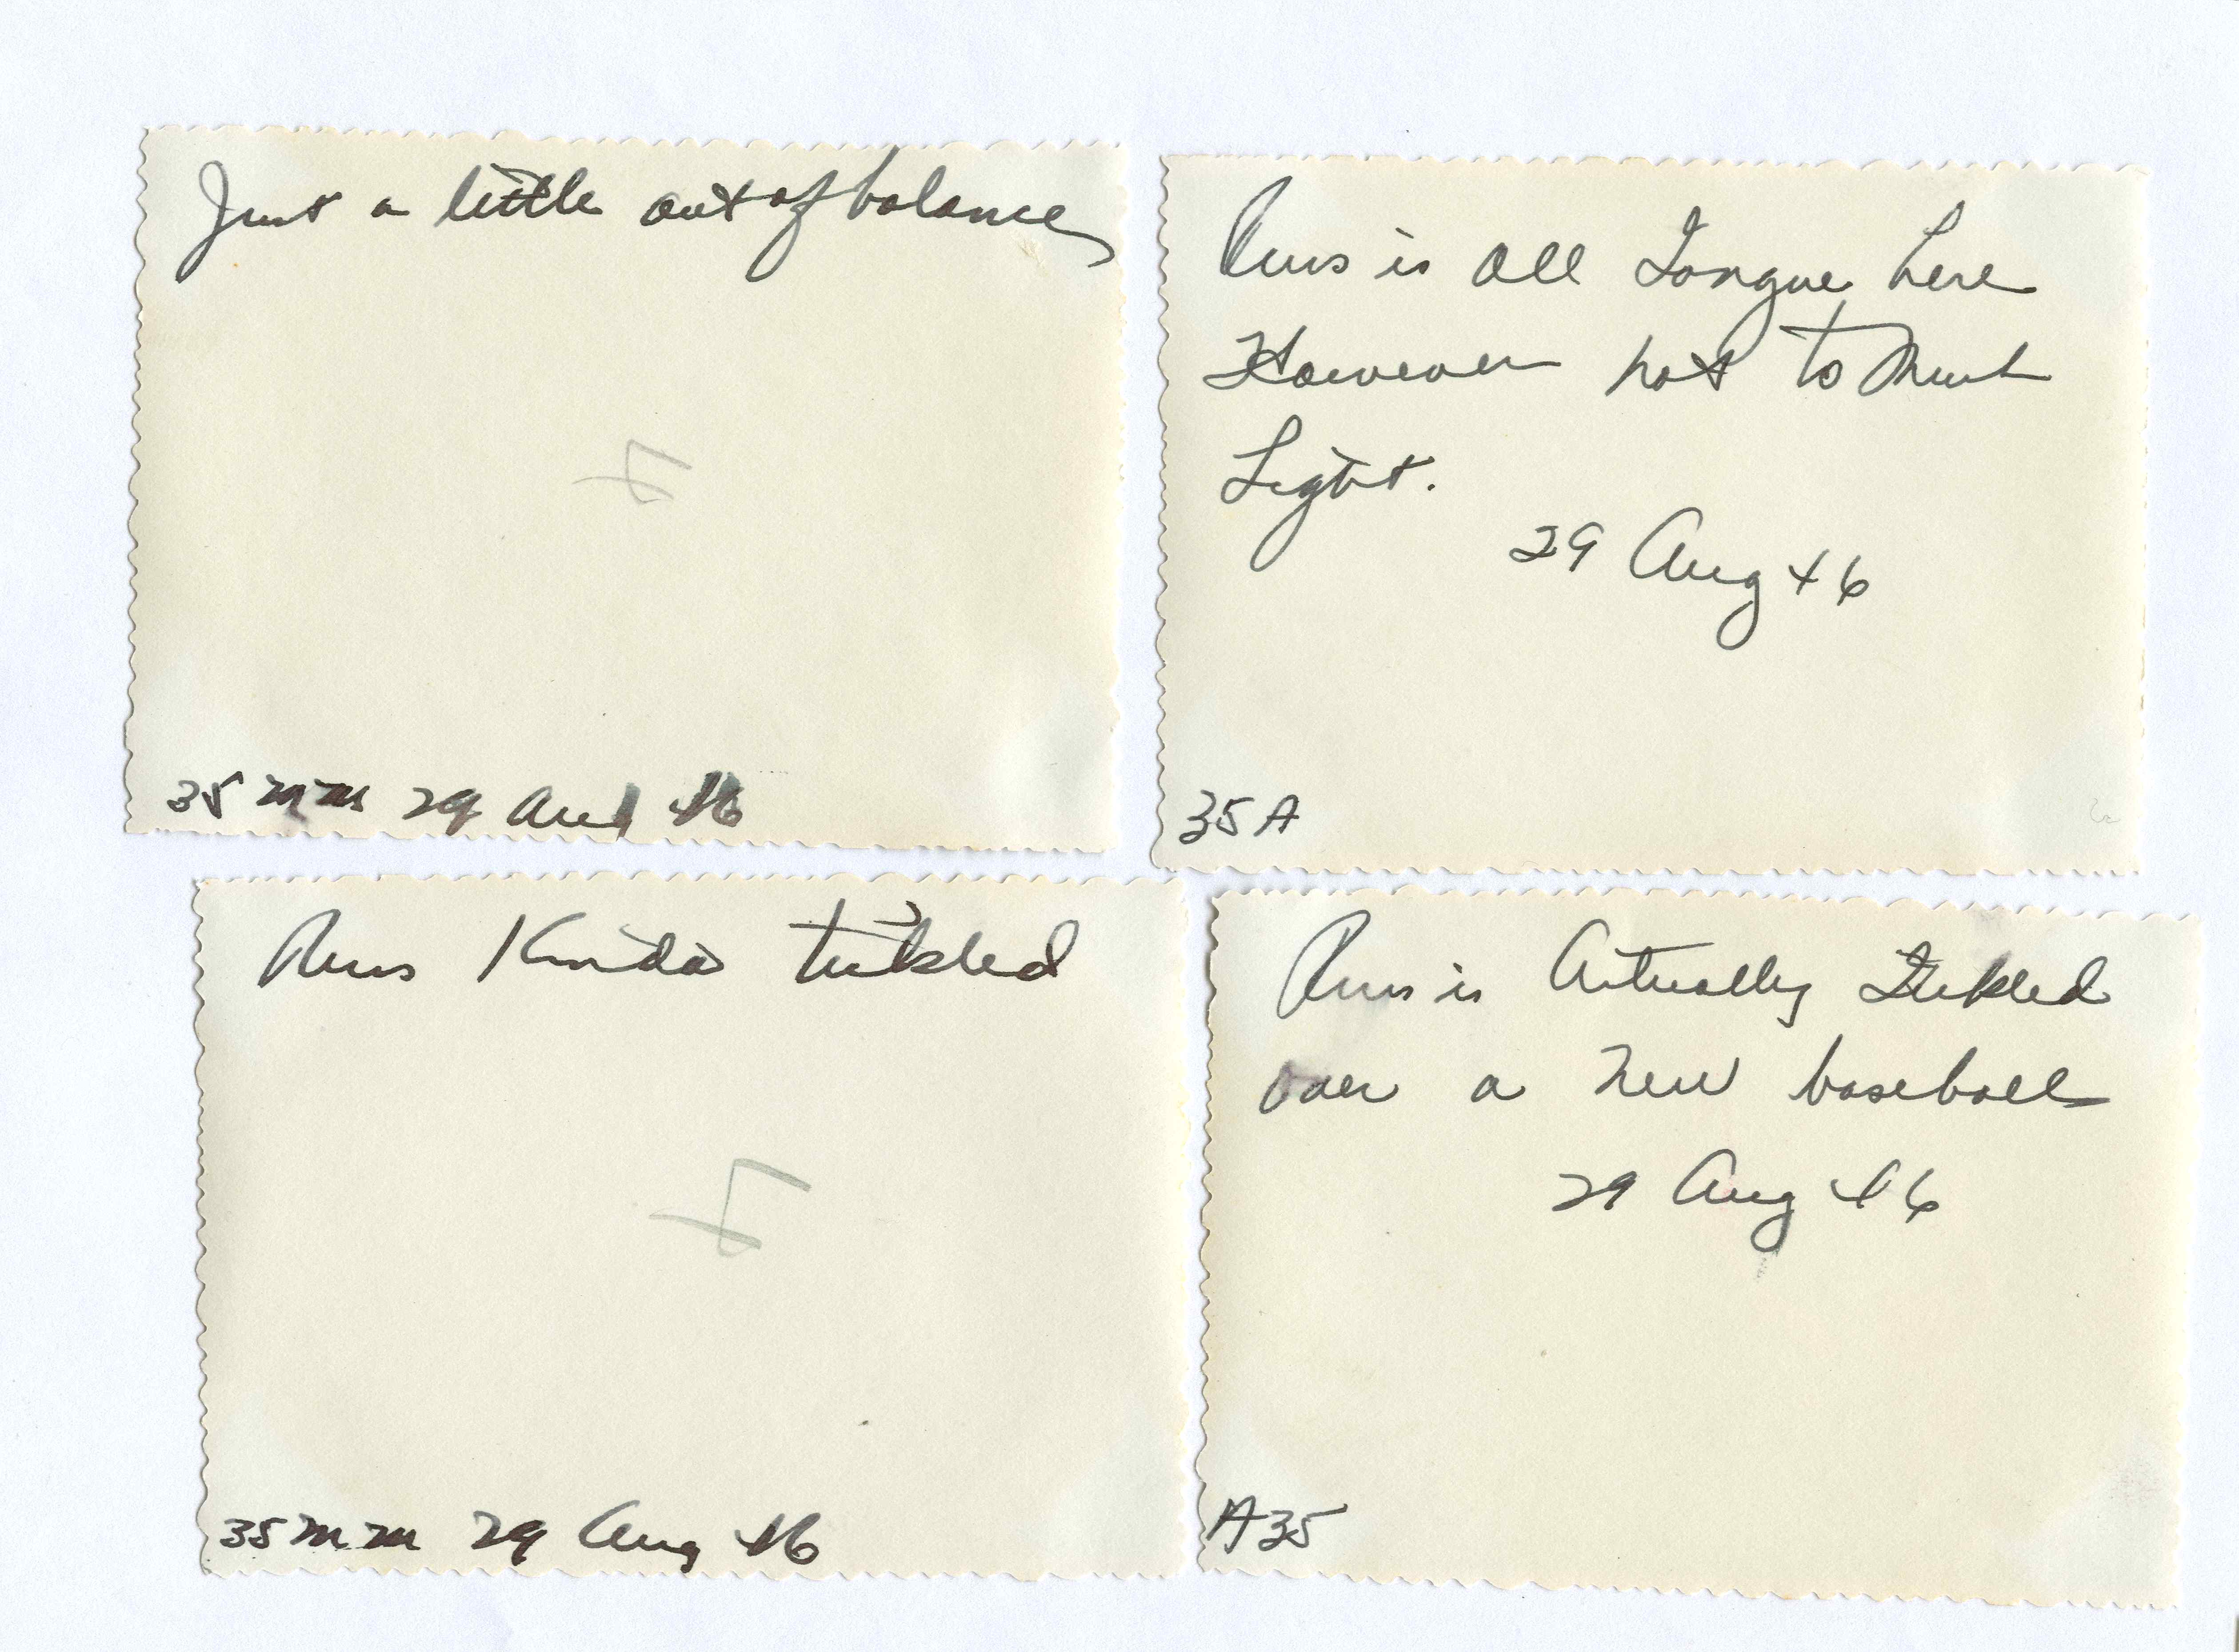 Just a little out of balance
35 mm 29 Aug 46
Russ is all Tongue here
However not to Much
Light.
29 Aug 46
35 A
Russ Kinda tickled
35 mm 29 Aug 46
Russ is Actually Tickled
over a new baseball
29 Aug 46
A35